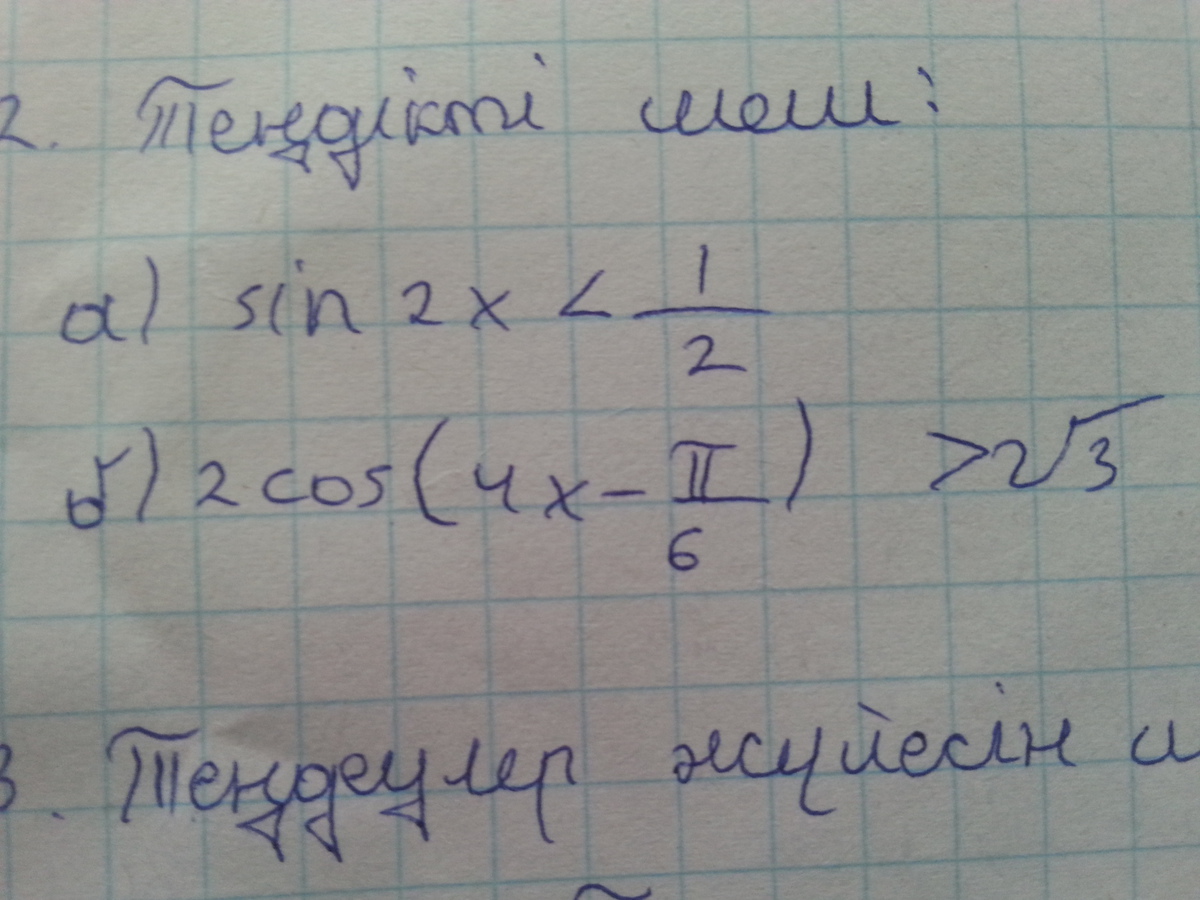 2. Теңдікті шеш:
а) sin 2x < 1/2
б) 2 cos(4x - π/6) > 2√3
3. Теңдеулер жүйесін ш